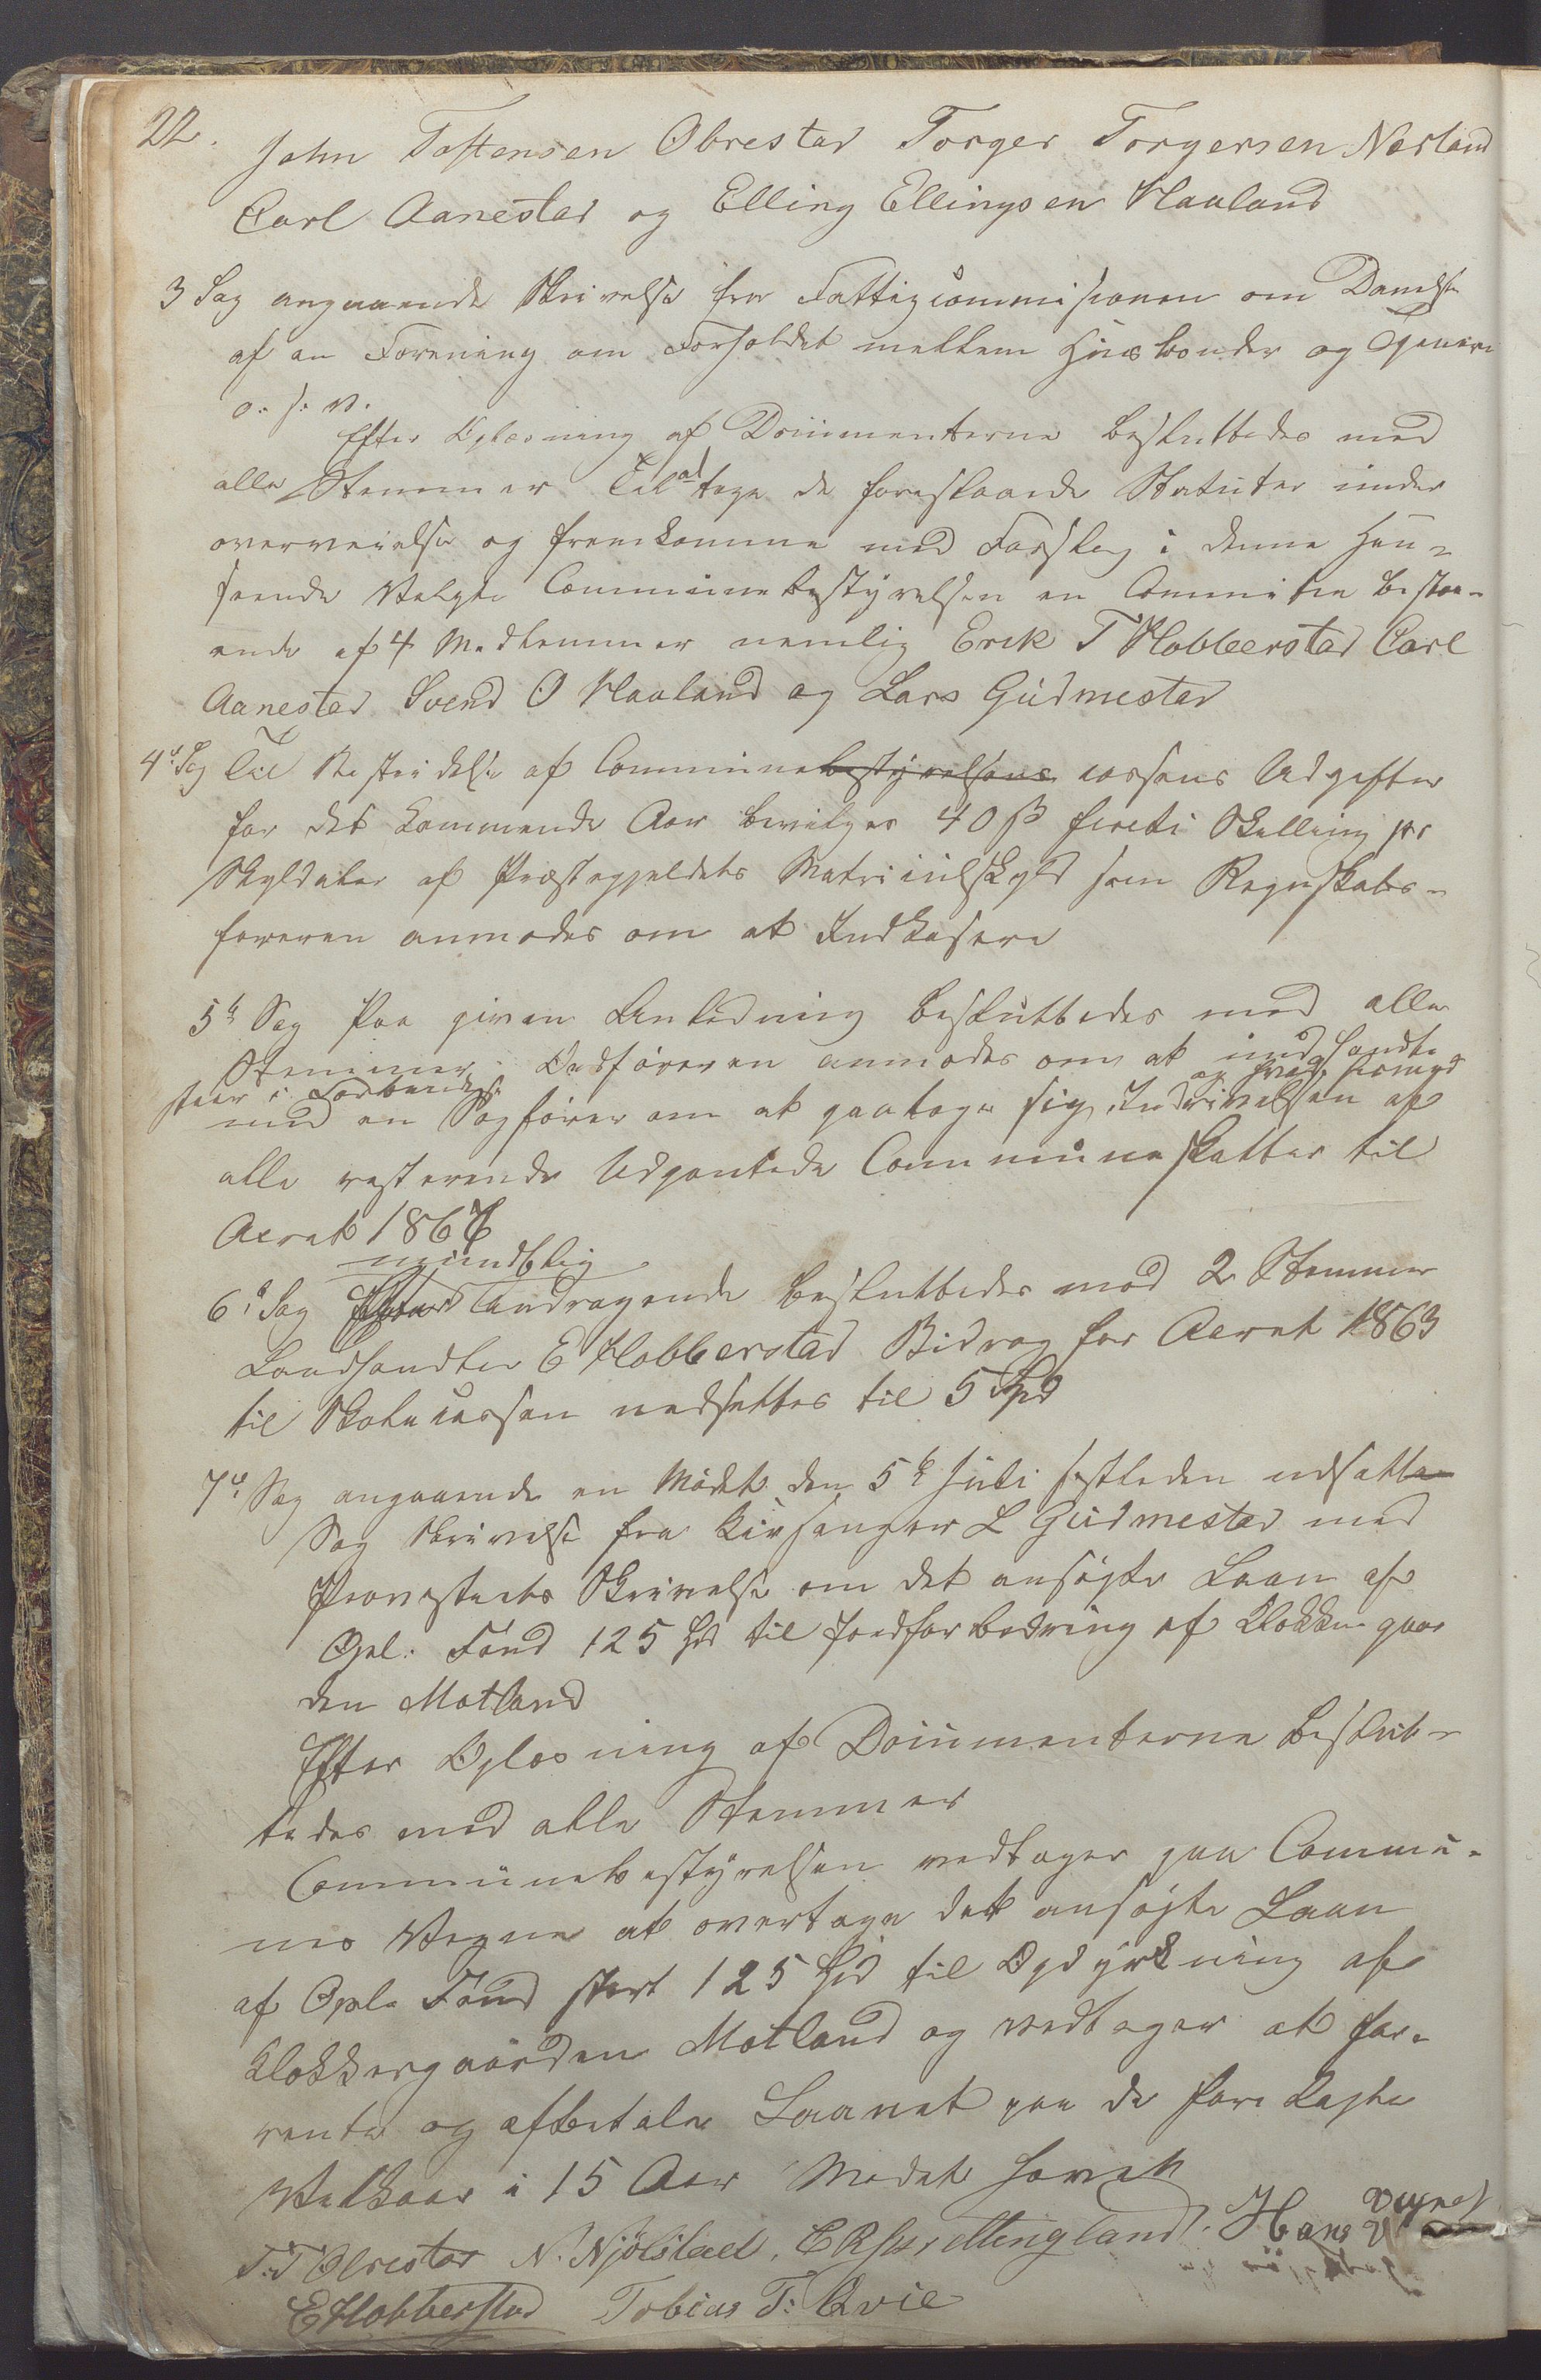 22.
John Tostensen Obrestad Torger Torgersen Nærland
Carl Aanestad og Elling Ellingsen Haaland
3 Sag angaaende Skrivelse fra Fattigcommisionen om Dannelse
af en Forening om Forholdet mellem Huusbonder og Tjenere
o. s. v.
Efter Oplæsning af Documenterne besluttedes med
alle Stemmer Til at tage de foreslaaede Statuter under
overveielse og fremkomme med Forslag i denne Hen-
seende Valgte Communebestyrelsen en Committe bestaa-
ende af 4 Medlemmer nemlig Erik T Hobberstad Carl
Aanestad Svend O Haaland og Lars Gudmestad
4de Sag Til Bestridelse af Communebestyrelsens cassens Udgifter
for det kommende Aar bevilges 40 ß fireti Skilling pr
Skylddaler af Præstegjeldets Matriculskyld som Regnskabs-
føreren anmodes om at Indkasere
5te Sag Paa given Anledning besluttedes med alle
Stemmer Ordføreren anmodes om at
staar i Forbindelse
med en Sagfører om at paatage sig Inddrivelsen af
alle resterende Udpantede Communeskatter til
Aaret 1867
mundtlig
6te Sag Efter Andragende besluttedes med 2 Stemmer
Landhandler E Hobberstad Bidrag for Aaret 1863
til Skolecassen nedsættes til 5 Spd
7de Sag angaaende en Mødet den 5te Juli sistleden udsatte
Sag Skrivelse fra Kirkesanger L Gudmestad med
Provstiets Skrivelse om det ansøgte Laan af
Opl. Fond 125 Spd til Jordforbedring af Klokkergaar
den Motland
Efter Oplæsning af Documenterne beslut-
tedes med alle Stemmer
Communebestyrelsen vedtager paa Commu-
nes Vegne at overtage det ansøgte Laan
af Opl. Fond stort 125 Spd til Opdyrkning af
Klokkergaarden Motland og vedtager at for-
rente og afbetale Laanet paa de forelagte
Vilkaar i 15 Aar Mødet hævet
T. T Obrestad N. Njølstad. Hans V
E Hobberstad Tobias T: Qvie